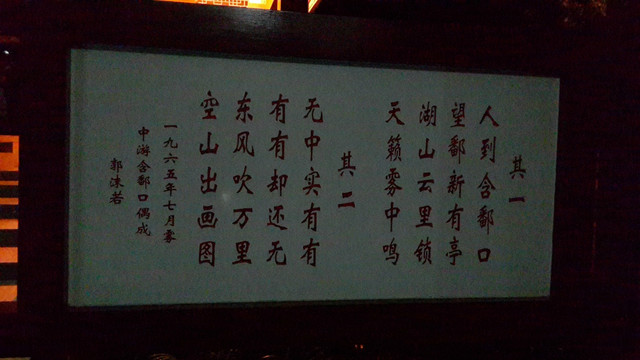 其一
人到含鄱口
望鄱新有亭
湖山云里锁
天籁雾中鸣
其二
无中实有有
有有却还无
东风吹万里
空山出画图
一九六五年七月雾
中游含鄱口偶成
郭沫若